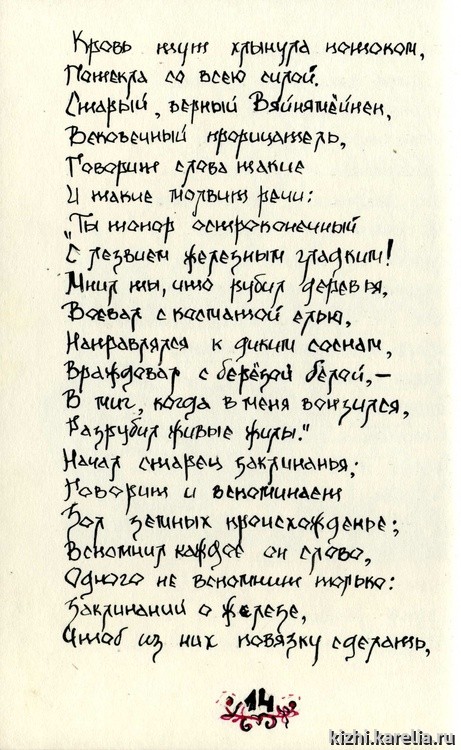 Кровь тут хлынула потоком,
Потекла со всею силой.
Старый, верный Вяйнямёйнен,
Вековечный прорицатель,
Говорит слова такие
И такие молвит речи:
"Ты топор остроконечный
С лезвием железным гладким!
Мнил ты, что рубил деревья,
Воевал с косматой елью,
Направлялся к диким соснам,
Враждовал с берёзой белой,—
В миг, когда в меня вонзился,
Разрубил живые жилы."
Начал старец заклинанья;
Говорит и вспоминает
Зол земных происхожденье;
Вспомнил каждое он слово,
Одного не вспомнит только:
Заклинаний о железе,
Чтоб из них повязку сделать,
14
kizhi.karelia.ru